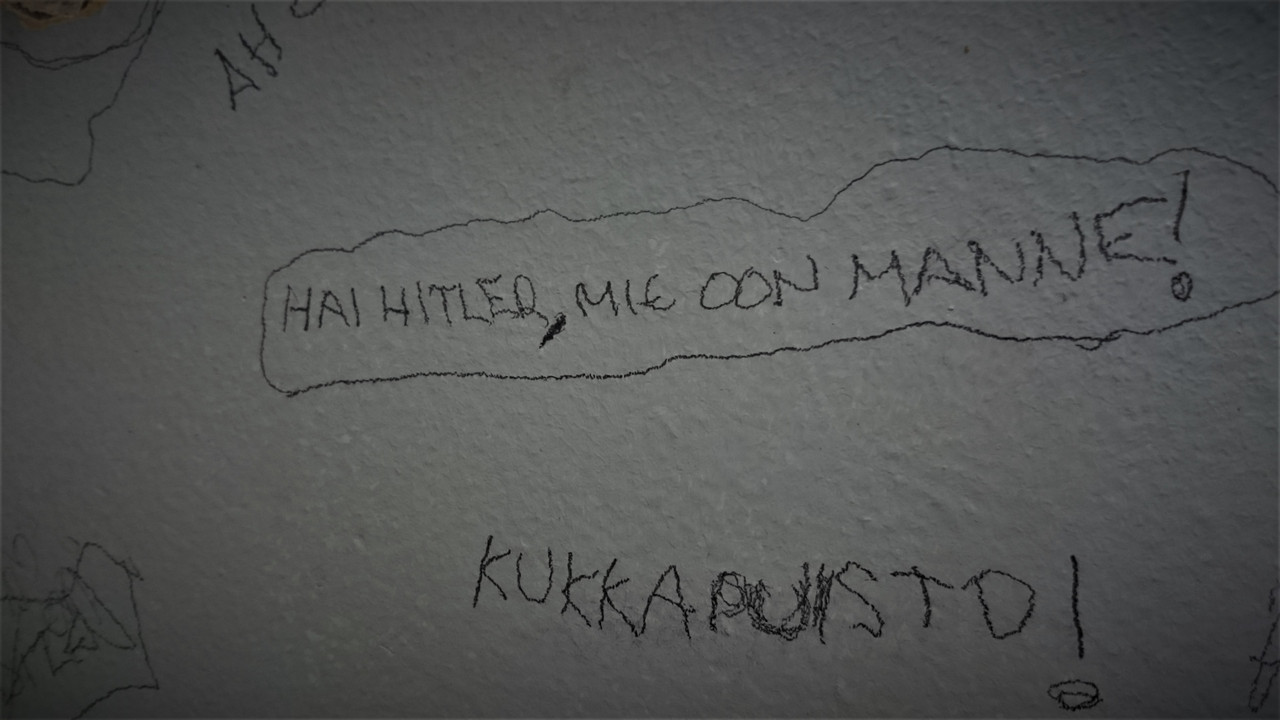 AH
HAI HITLER, MIE OON MANNE!
KUKKAPUISTO!